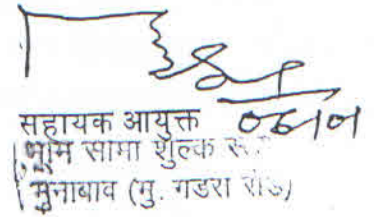 सहायक आयुक्त
भूमि सीमा शुल्क
मुनाबाव (मु. गडरा रोड)